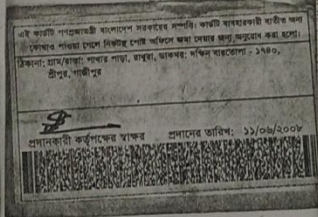 এই কার্ডটি গণপ্রজাতন্ত্রী বাংলাদেশ সরকারের সম্পত্তি। কার্ডটি ব্যবহারকারী ব্যতীত অন্য
কোথাও পাওয়া গেলে নিকটস্থ পোষ্ট অফিসে জমা দেয়ার জন্য অনুরোধ করা হলো।
ঠিকানা: গ্রাম/রাস্তা: পাথার পাড়া, রাথুরা, ডাকঘর: দক্ষিন বারতোপা - ১৭৪০,
শ্রীপুর, গাজীপুর
প্রদানকারী কর্তৃপক্ষের স্বাক্ষর প্রদানের তারিখ: ১১/০৬/২০০৮